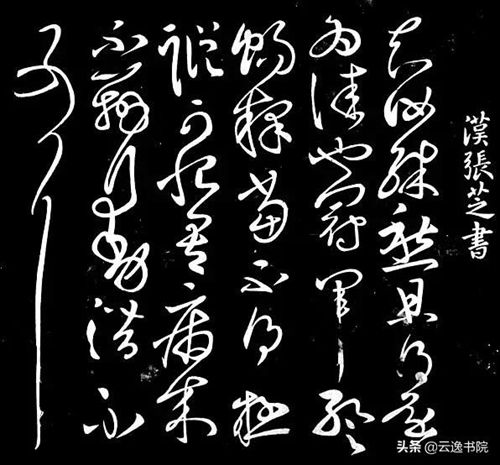 漢張芝書
知汝殊愁且得還
為佳也冠軍暫
暢釋當不得極
蹤可恨吾病來
不辦行動潜不
可耳
头条 @云逸书院